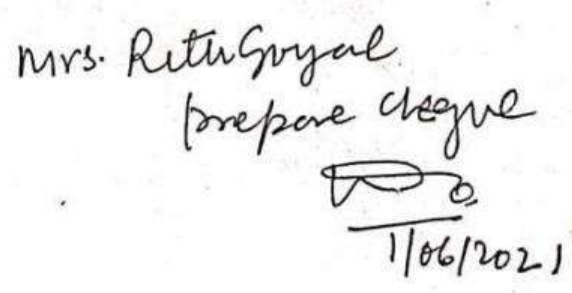 Mrs. Ritu Goyal
prepare cheque
1/06/2021